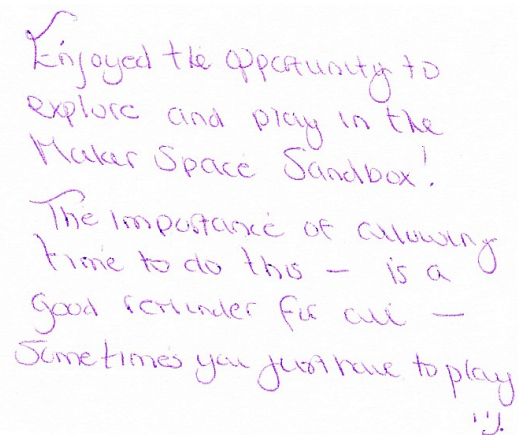 Enjoyed the opportunity to
explore and play in the
Maker Space Sandbox!
The importance of allowing
time to do this – is a
good reminder for all –
Sometimes you just have to play
:).